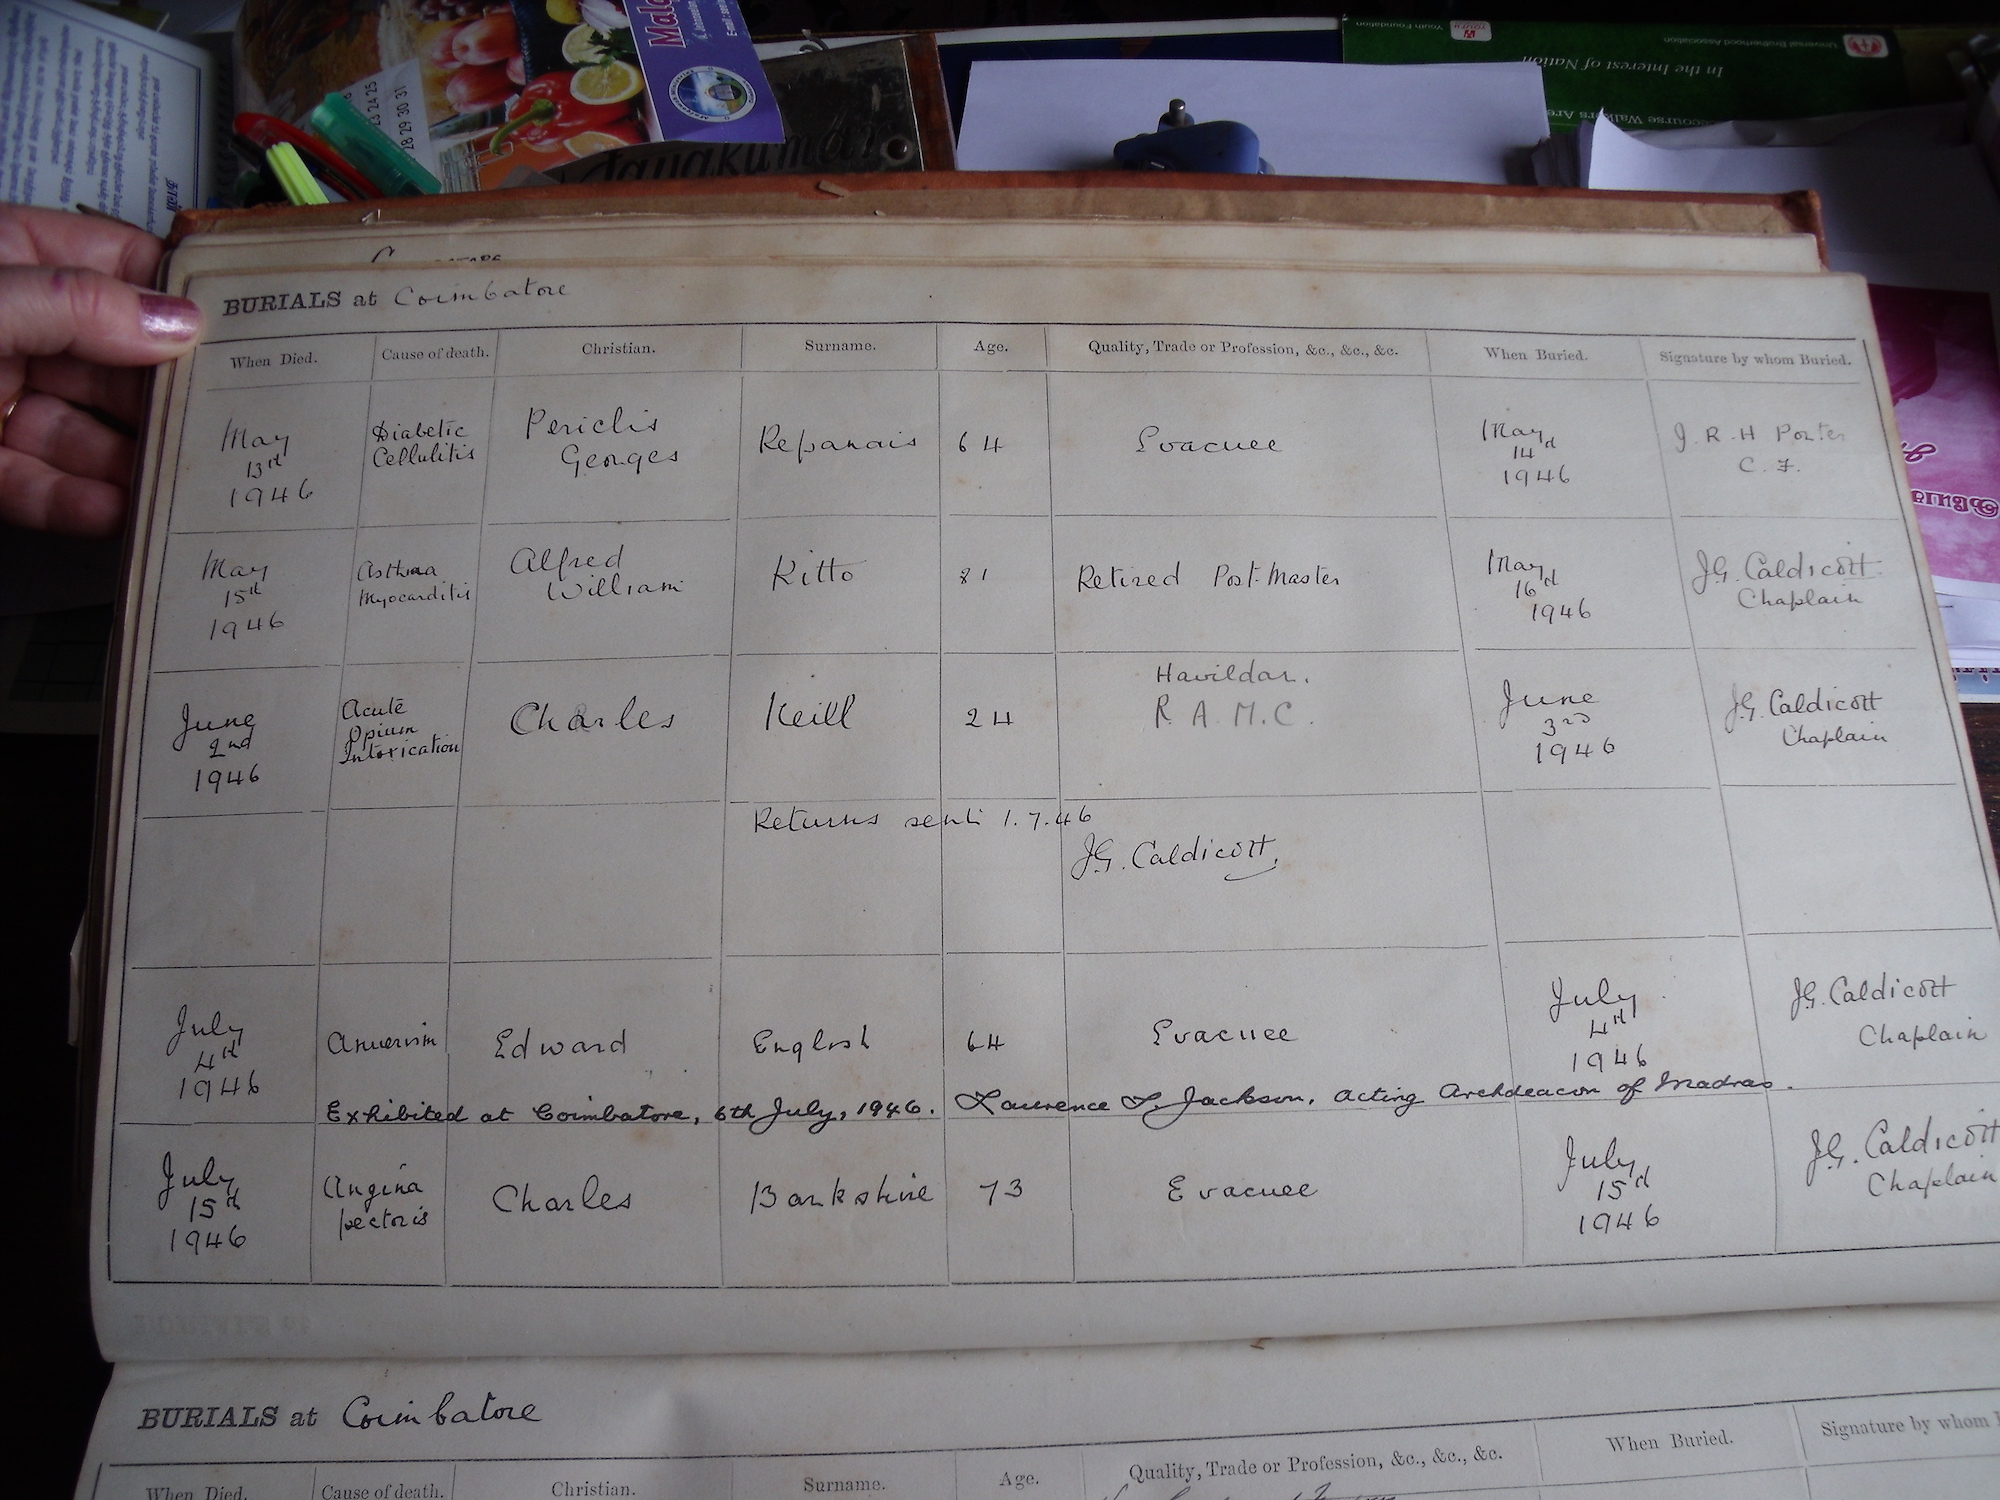 Jayakumar
In the Interest of Nation
Universal Brotherhood Association
Youth Foundation
23 24 25
28 29 30 31
BURIALS at Coimbatore
When Died. Cause of death. Christian. Surname. Age. Quality, Trade or Profession, &c., &c., &c. When Buried. Signature by whom Buried.
May 13th 1946 Diabetic Cellulitis Periclis Georges Repanais 64 Evacuee May 14th 1946 J. R. H Porter C. F.
May 15th 1946 Asthma Myocarditis Alfred William Kitto 81 Retired Post-Master May 16th 1946 J.G. Caldicott Chaplain
June 2nd 1946 Acute Opium Intoxication Charles Keill 24 Havildar. R. A. M. C. June 3rd 1946 J.G. Caldicott Chaplain
Returns sent 1.7.46
J.G. Caldicott.
July 4th 1946 Anuerism Edward English 64 Evacuee July 4th 1946 J.G. Caldicott Chaplain
Exhibited at Coimbatore, 6th July, 1946. Laurence L. Jackson, Acting Archdeacon of Madras.
July 15th 1946 Angina pectoris Charles Bankshire 73 Evacuee July 15th 1946 J.G. Caldicott Chaplain
BURIALS at Coimbatore
When Died. Cause of death. Christian. Surname. Age. Quality, Trade or Profession, &c., &c., &c. When Buried. Signature by whom